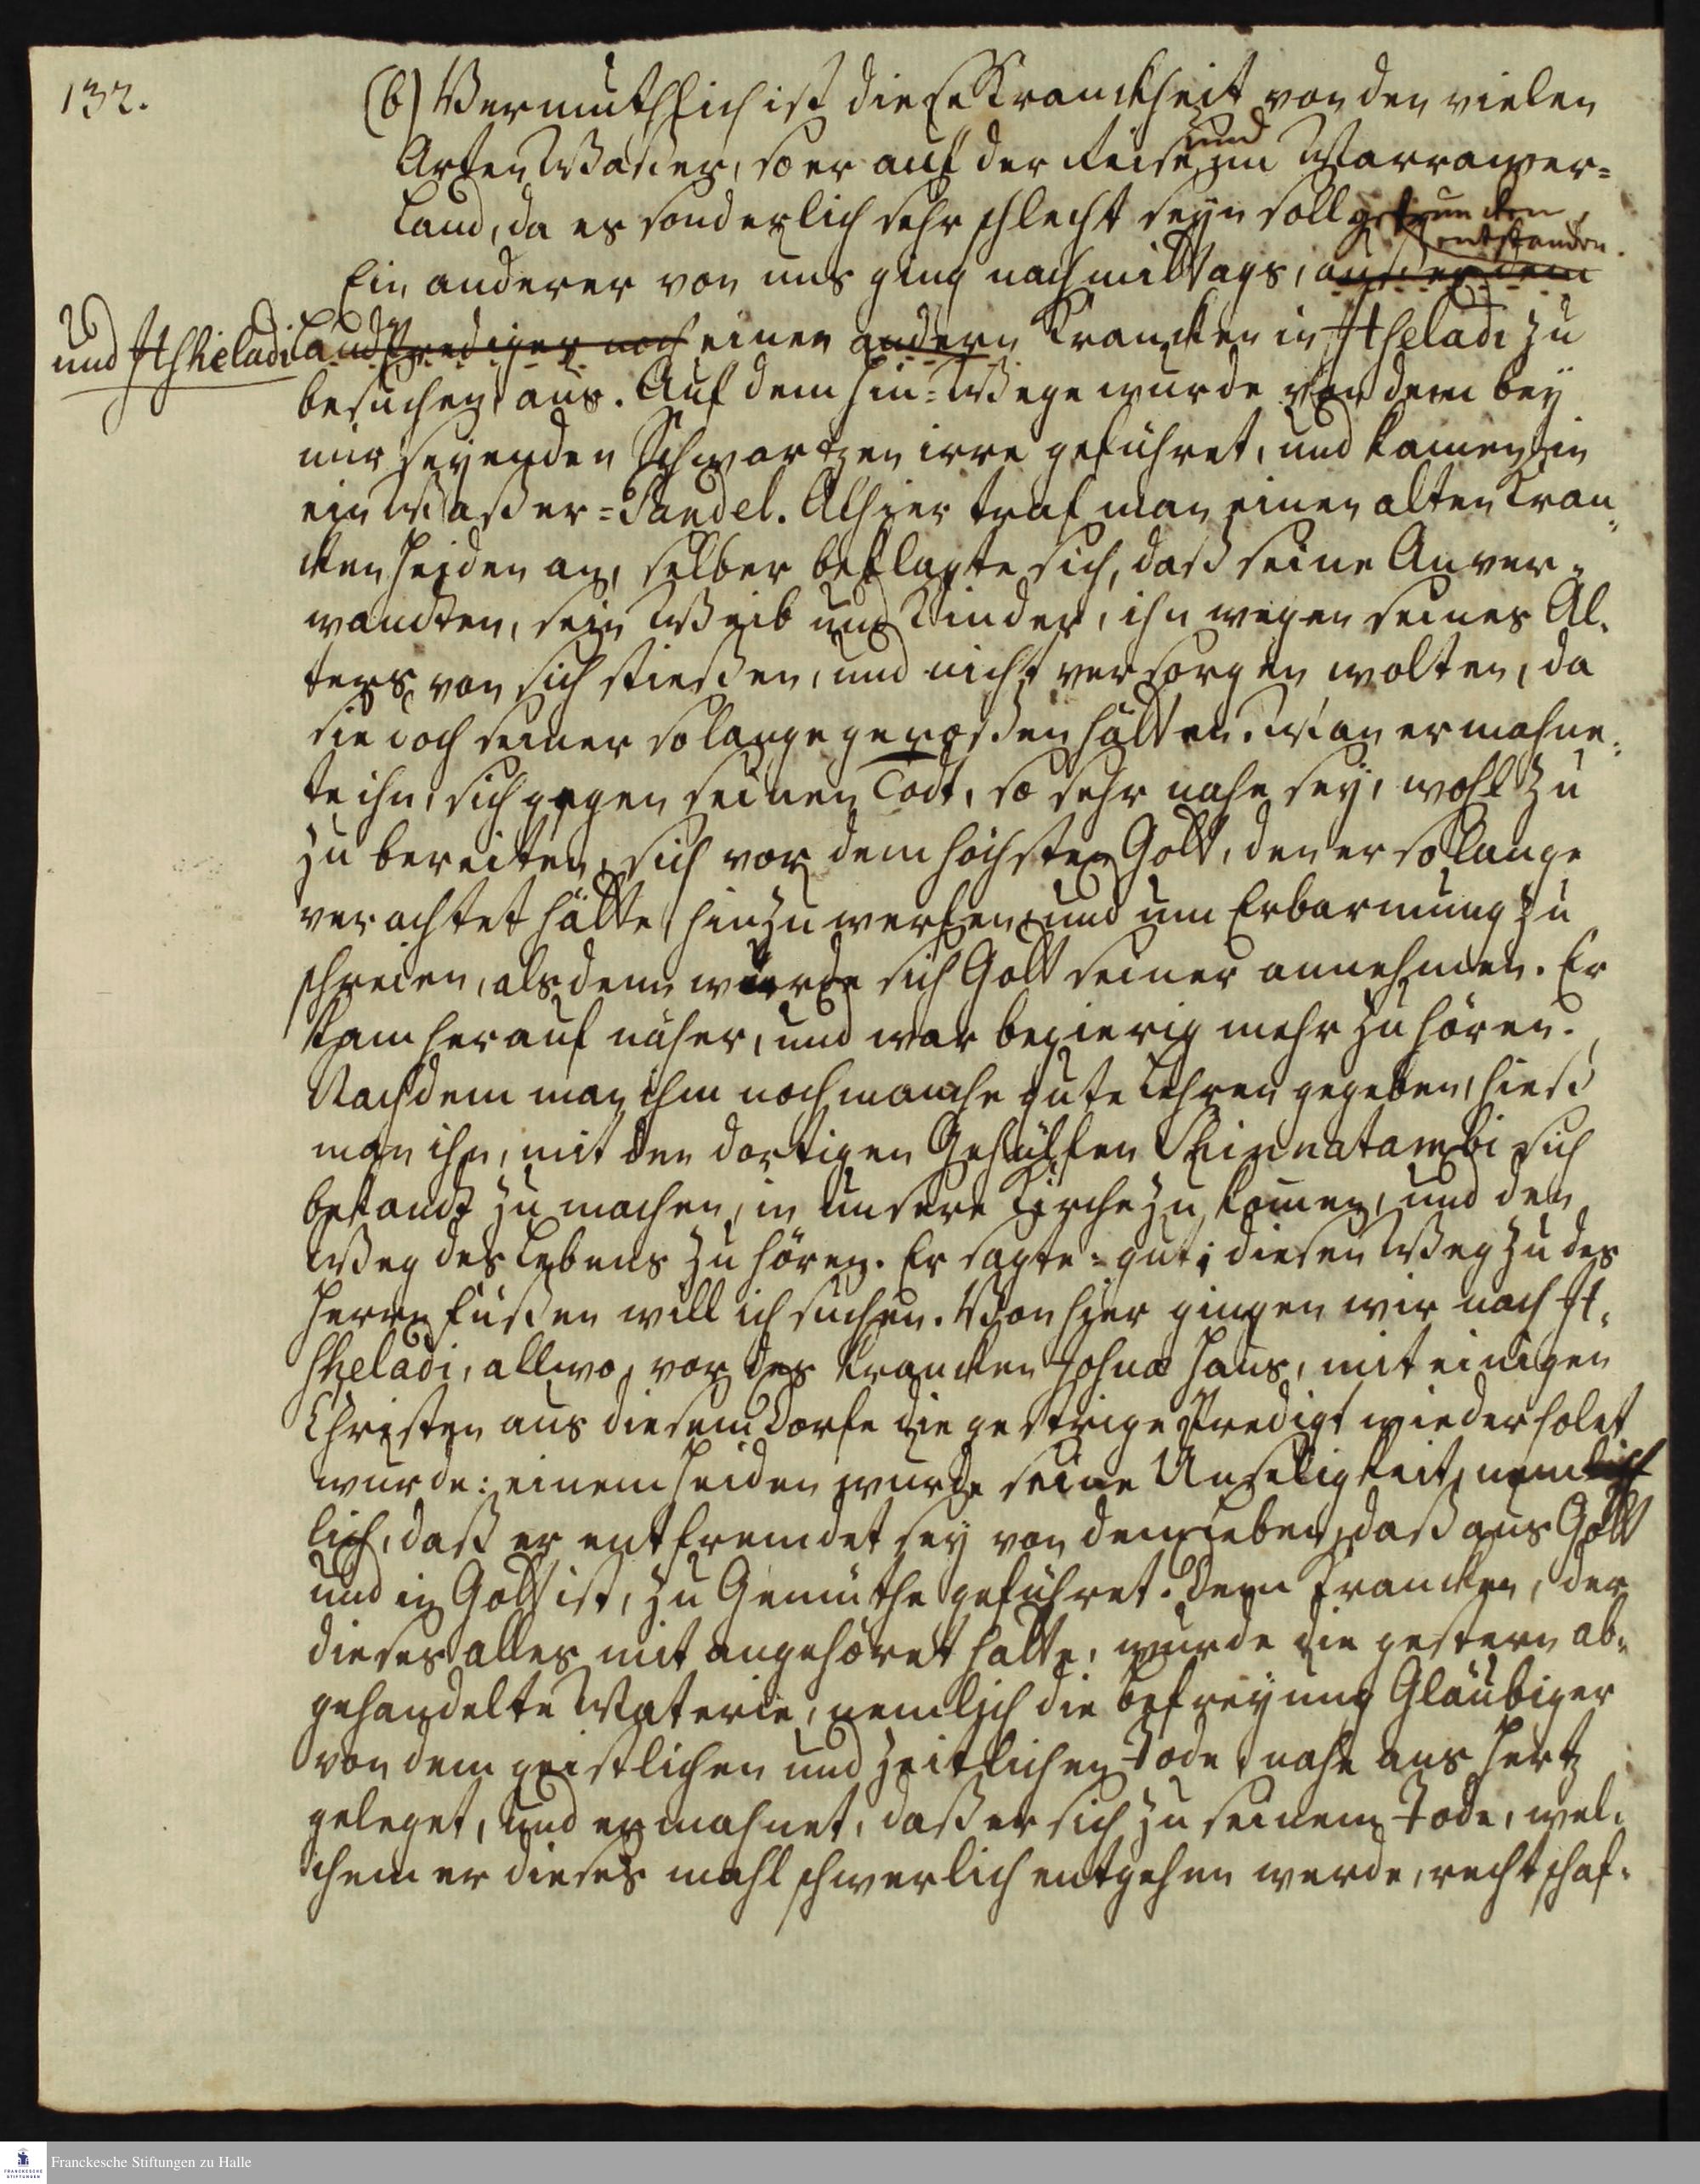 132.
(b) Vermuthlich ist diese Kranckheit von den vielen
Arten Waßer, so er auf der Reise und im Marrawer-
Land, da es sonderlich sehr schlecht seyn soll getruncken,
entstanden.
Ein anderer von uns ging nachmittags, außer dem
und Itscheladi
LandPrediger noch einen andern Krancken in Itscheladi zu
besuchen, aus. Auf dem Hin-Wege wurde von dem bey
mir seyenden Schwartzen irre geführet, und kamen in
ein Waßer-Pandel. Alhier traf man einen alten kran-
cken Heiden an, selber beklagte sich, daß seine Anver-
wandten, sein Weib und Kinder, ihn wegen seines Al-
ters von sich stießen, und nicht versorgen wolten, da
sie doch seiner so lange genoßen hätten. Man ermahne-
te ihn, sich gegen seinen Todt, so sehr nahe sey, wohl zu
zu bereiten, sich vor dem höchsten Gott, den er so lange
verachtet hätte, hinzuwerfen und um Erbarmung zu
schreien, alsdenn würde sich Gott seiner annehmen. Er
kam herauf näher, und war begierig mehr zu hören.
Nachdem man ihm noch manche gute Lehren gegeben, hieß
man ihn, mit den dortigen Gehülfen Schinnatambi sich
bekandt zu machen, in unsere Kirche zu komen, und den
Weg des Lebens zu hören. Er sagte: gut; diesen Weg zu des
Herrn Füßen will ich suchen. Von hier gingen wir nach It-
scheladi, allwo, vor des krancken Josuæ Haus, mit einigen
Christen aus diesem Dorfe die gestrige Predigt wiederholet
wurde: einem Heiden wurde seine Unseligkeit, nem
lich, daß er entfremdet sey von dem Leben, daß aus Gott
und in Gott ist, zu Gemüthe geführet. Dem Krancken, der
dieses alles mit angehöret hatte, wurde die gestern ab-
gehandelte Materie, nemlich die Befreyung Gläubiger
von dem geistlichen und zeitlichen Tode, nahe ans Hertz
geleget, und ermahnet, daß er sich zu seinem Tode, wel-
chem er dieses mahl schwerlich entgehen werde, rechtschaf-
Franckesche Stiftungen zu Halle